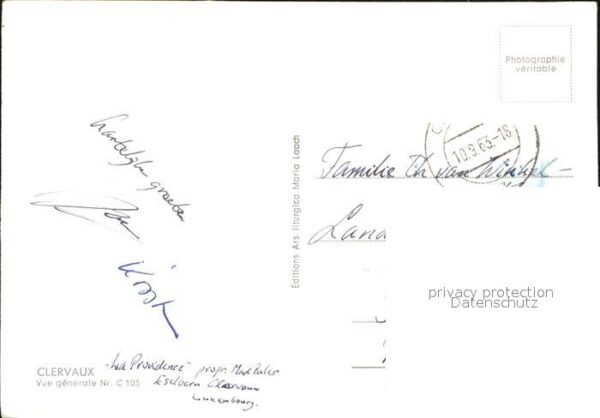 Photographie
véritable
10.9.63-18
Familie Th van Winkel-
Lana
Hartelijke groeten
Editions Ars liturgica Maria Laach
privacy protection
Datenschutz
CLERVAUX "La Providence" propr.
Vue générale Nr. C 105 Eselborn Clervaux
Luxembourg.